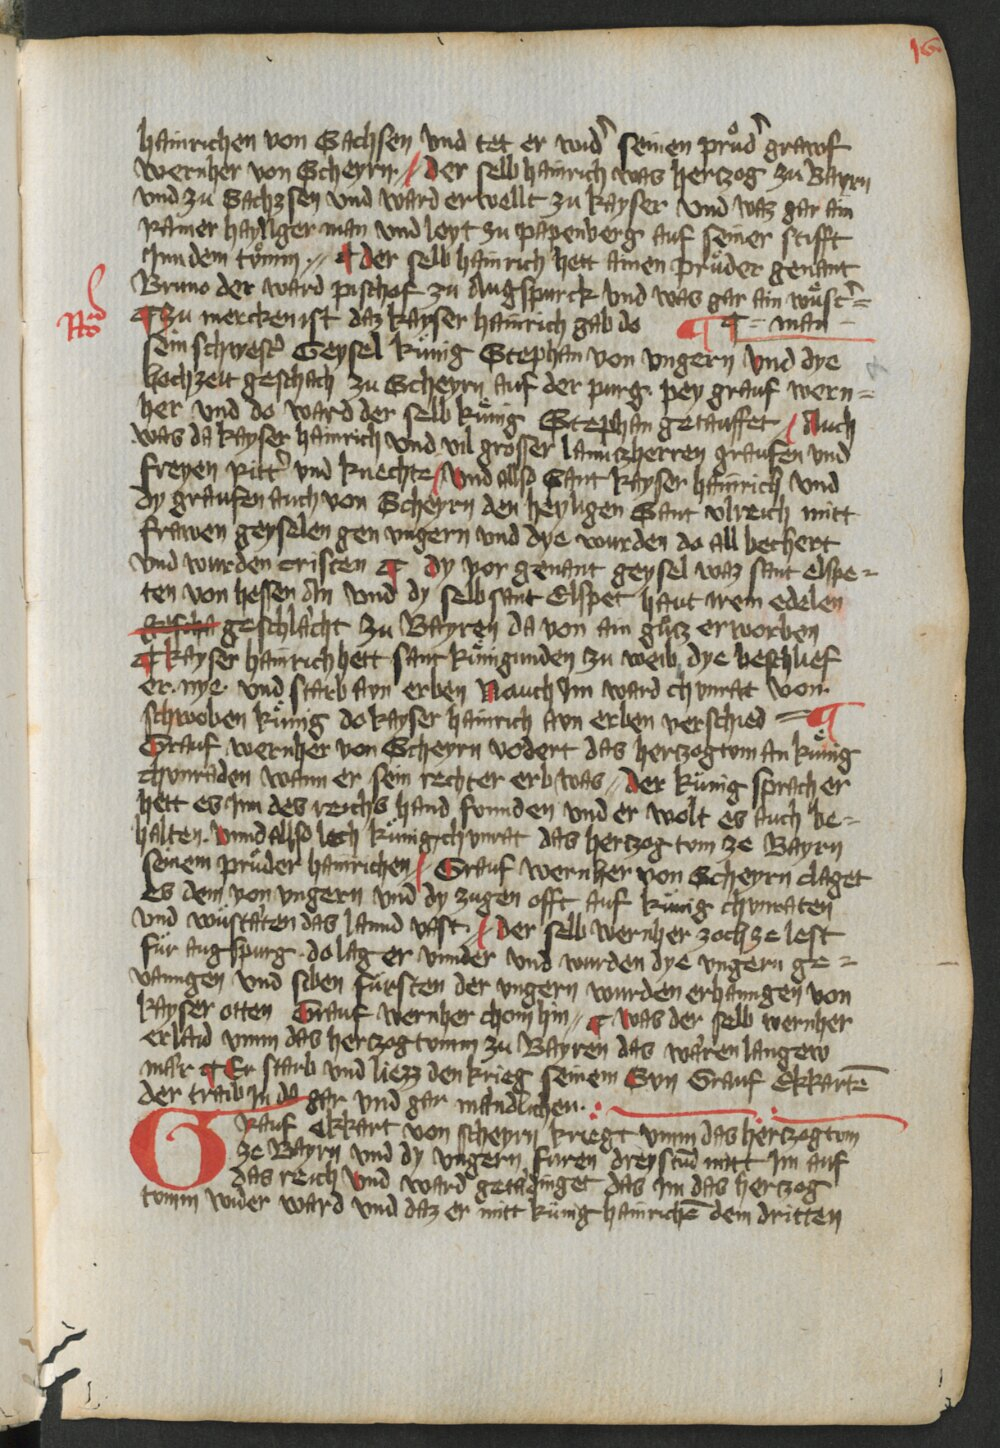 16
hainrichen von Sachsen vnd tet er wid͛ seinen pruͦd͛ grawf
wernher von Scheyrn // der selb hainrich was hertzog zu Bayrn
vnd zu Sachzsen vnd ward erwellt zu kayser vnd waz gar ain
rainer hayliger man vnd leyt zu papenberg auf seiner stifft
Jnn dem tuͦmm // ¶ der selb hainrich hett ainen pruͦder genant
Bruno der ward pischof zu Augspurck vnd was gar ain wuͤst͛ =
¶ zu mercken ist daz kayser hainrich gab do ¶ ¶ = man
sein schwest͛ Geysel kuͤnig Stephan von vngern vnd dye
hochzeit geschach zu Scheyrn auf der purg pey grauf wern =
her vnd do ward der selb kuͤnig Stephan getauffet / Auch
was da kayser hainrich vnd vil grosser lanntzherren graufen vnd
freyen ritt͛ vnd knechte / vnd allso sant kayser hainrich vnd
dy graufen auch von Scheyrn den heyligen Sant vlreich mitt
frawen geyselen gen vngern vnd dye wurden do all bechert
vnd wurden cristen ¶ dy vor genant geysel waz sant elspe =
ten von hessen än vnd dy selb sant Elspet haut irem edelen
geschlächt zu Bayren da von ain guͤtz erworben
¶ kayser hainrich hett sant kuͤnigunden zu weib dye beschlief
er nye vnd starb ayn erben Nauch Jm ward chunrat von
schwoben kuͤnig do kayser hainrich ayn erben verschied = ¶
Grauf wernher von Scheyrn vodert das hertzogtom an kuͤnig
chunraden wann er sein rechter erb was // der kuͤnig sprach er
hett es Jm des reichs hand funnden vnd er wolt es auch be =
halten. vnnd allso lech kuͤnig chunrat das hertzog tom ze Bayrn
seinem pruͦder hainrichen / Grauf wernher von Scheyrn claget
es dem von vngern vnd dy zugen offt auf kuͤnig chunraten
vnd wuͤstäten das lannd vast // der selb wernher zoch ze lest
fuͤr augspurg do lag er vnnder vnd wurden dye vngern ge =
vanngen vnd siben fuͤrsten der vngern wurden erhanngen von
kayser otten Grauf wernher chom hin // ¶ was der selb wernher
erlaid vmm das hertzogtumm zu Bayren das wären langew
mär ¶ Er starb vnd liezz den krieg seinem Sun Grauf Ekkartē
der traib Jn do gar vnd gar mandlichen
Grauf Ekkart von scheyrn kriegt vmm das hertzogtom
ze Bayrn vnd dy vngern furen drey stud mitt Jm auf
das reich vnd ward getädinget das Jm das hertzog
tomm wider ward vnd daz er mitt kuͤnig hainrichē dem dritten